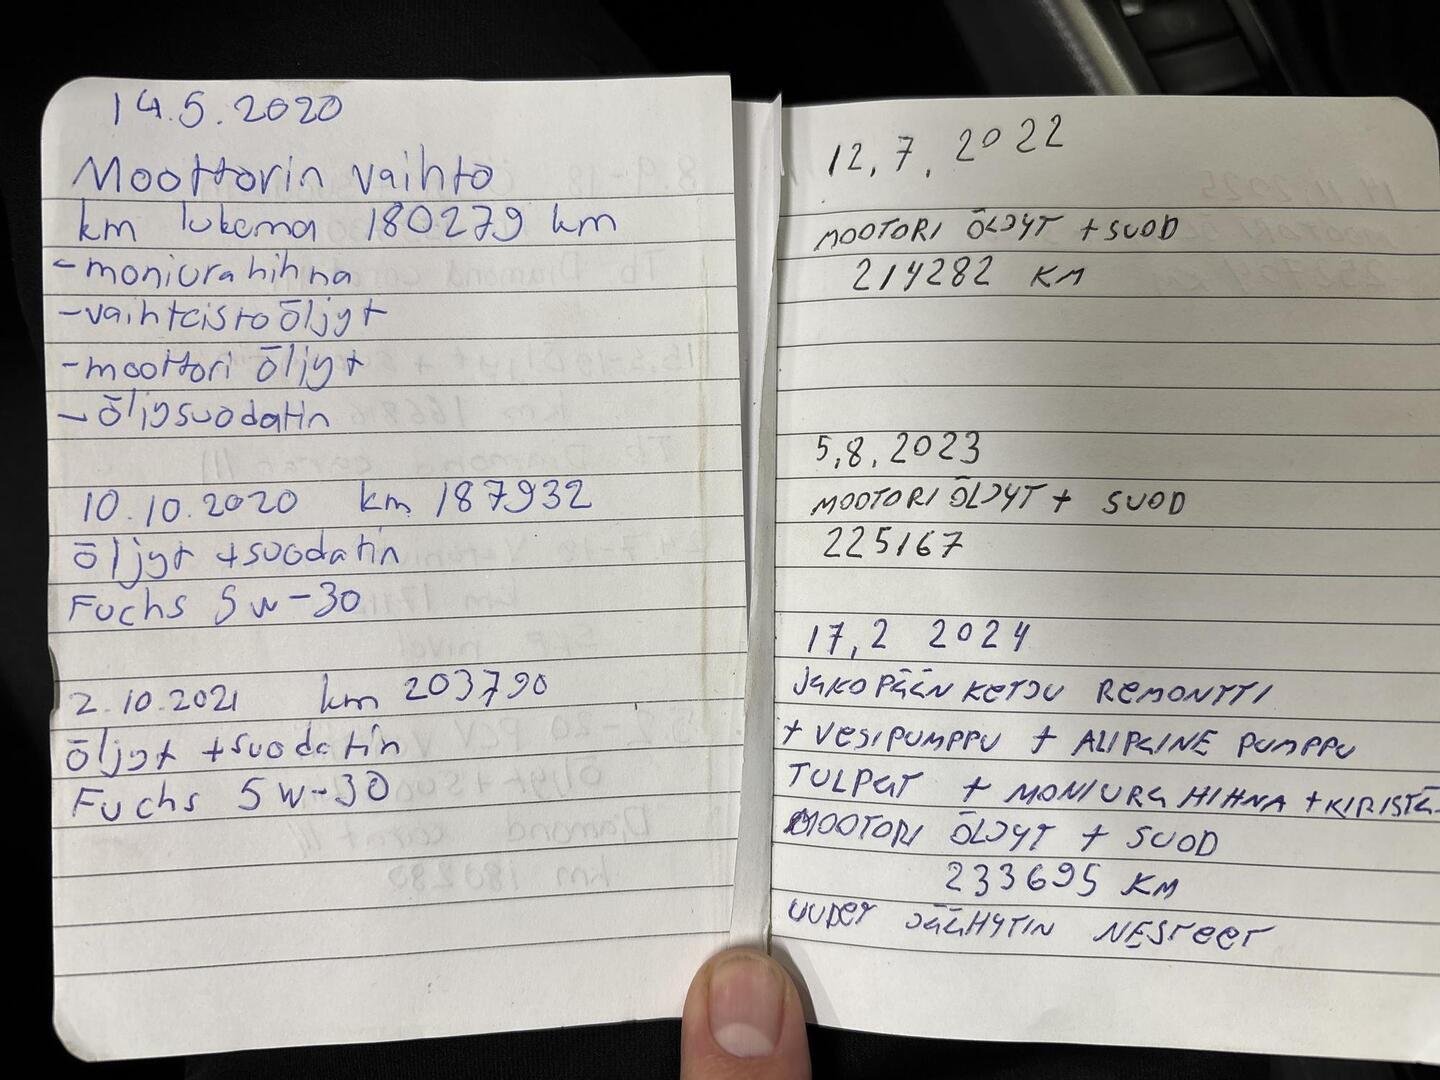 14.5.2020
Moottorin vaihto
km lukema 180279 km
-moniurahihna
-vaihteistoöljyt
-moottori öljyt
-öljysuodatin
10.10.2020 km 187932
öljyt +suodatin
Fuchs 5w-30
2.10.2021 km 203790
öljyt +suodatin
Fuchs 5w-30
12.7.2022
MOOTORI ÖLJYT + SUOD
214282 KM
5.8.2023
MOOTORI ÖLJYT + SUOD
225167
17.2 2024
JAKOPÄÄN KETJU REMONTTI
+ VESIPUMPPU + ALIPAINE PUMPPU
TULPAT + MONIURA HIHNA + KIRISTÄ
MOOTORI ÖLJYT + SUOD
233695 KM
UUDET JÄÄHYTIN NESTEET